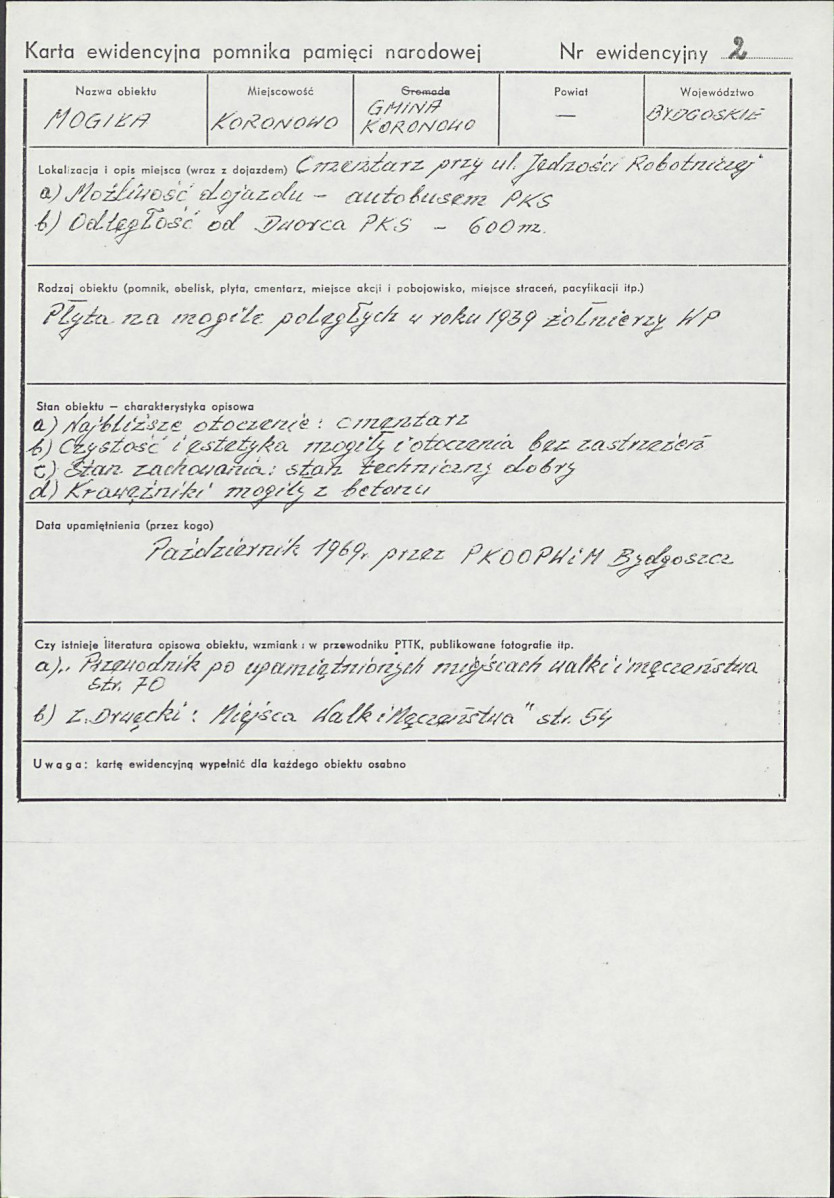 Karta ewidencyjna pomnika pamięci narodowej Nr ewidencyjny 2
Nazwa obiektu Miejscowość Gromada Powiat Województwo
MOGIŁA KORONOWO GMINA KORONOWO — BYDGOSKIE
Lokalizacja i opis miejsca (wraz z dojazdem) Cmentarz przy ul. Jedności Robotniczej
a) Możliwość dojazdu – autobusem PKS
b) Odległość od Dworca PKS – 600 m.
Rodzaj obiektu (pomnik, obelisk, płyta, cmentarz, miejsce akcji i pobojowisko, miejsce straceń, pacyfikacji itp.)
Płyta na mogile poległych w roku 1939 żołnierzy WP
Stan obiektu – charakterystyka opisowa
a) Najbliższe otoczenie: cmentarz
b) Czystość i estetyka mogiły i otoczenia bez zastrzeżeń
c) Stan zachowania: stan techniczny dobry
d) Krawężniki mogiły z betonu
Data upamiętnienia (przez kogo)
Październik 1969r. przez PKOOPWiM Bydgoszcz
Czy istnieje literatura opisowa obiektu, wzmianki w przewodniku PTTK, publikowane fotografie itp.
a) „Przewodnik po upamiętnionych miejscach walki i męczeństwa
str. 70
b) Z. Drwęcki: Miejsca Walk i Męczeństwa" str. 54
Uwaga: kartę ewidencyjną wypełnić dla każdego obiektu osobno